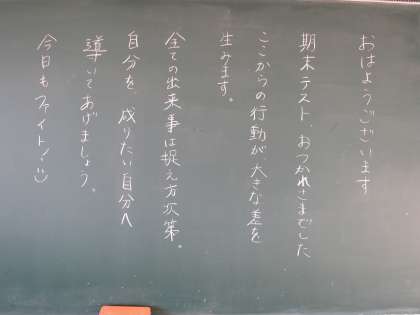 おはようございます
期末テスト、おつかれさまでした
ここからの行動が、大きな差を
生みます。
全ての出来事は捉え方次第。
自分を、成りたい自分へ
導いてあげましょう。
今日もファイト!☺